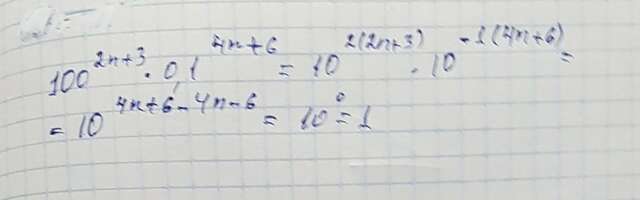 100^{2n+3} · 0,1^{4n+6} = 10^{2(2n+3)} · 10^{-1(4n+6)} =
= 10^{4n+6-4n-6} = 10^0 = 1